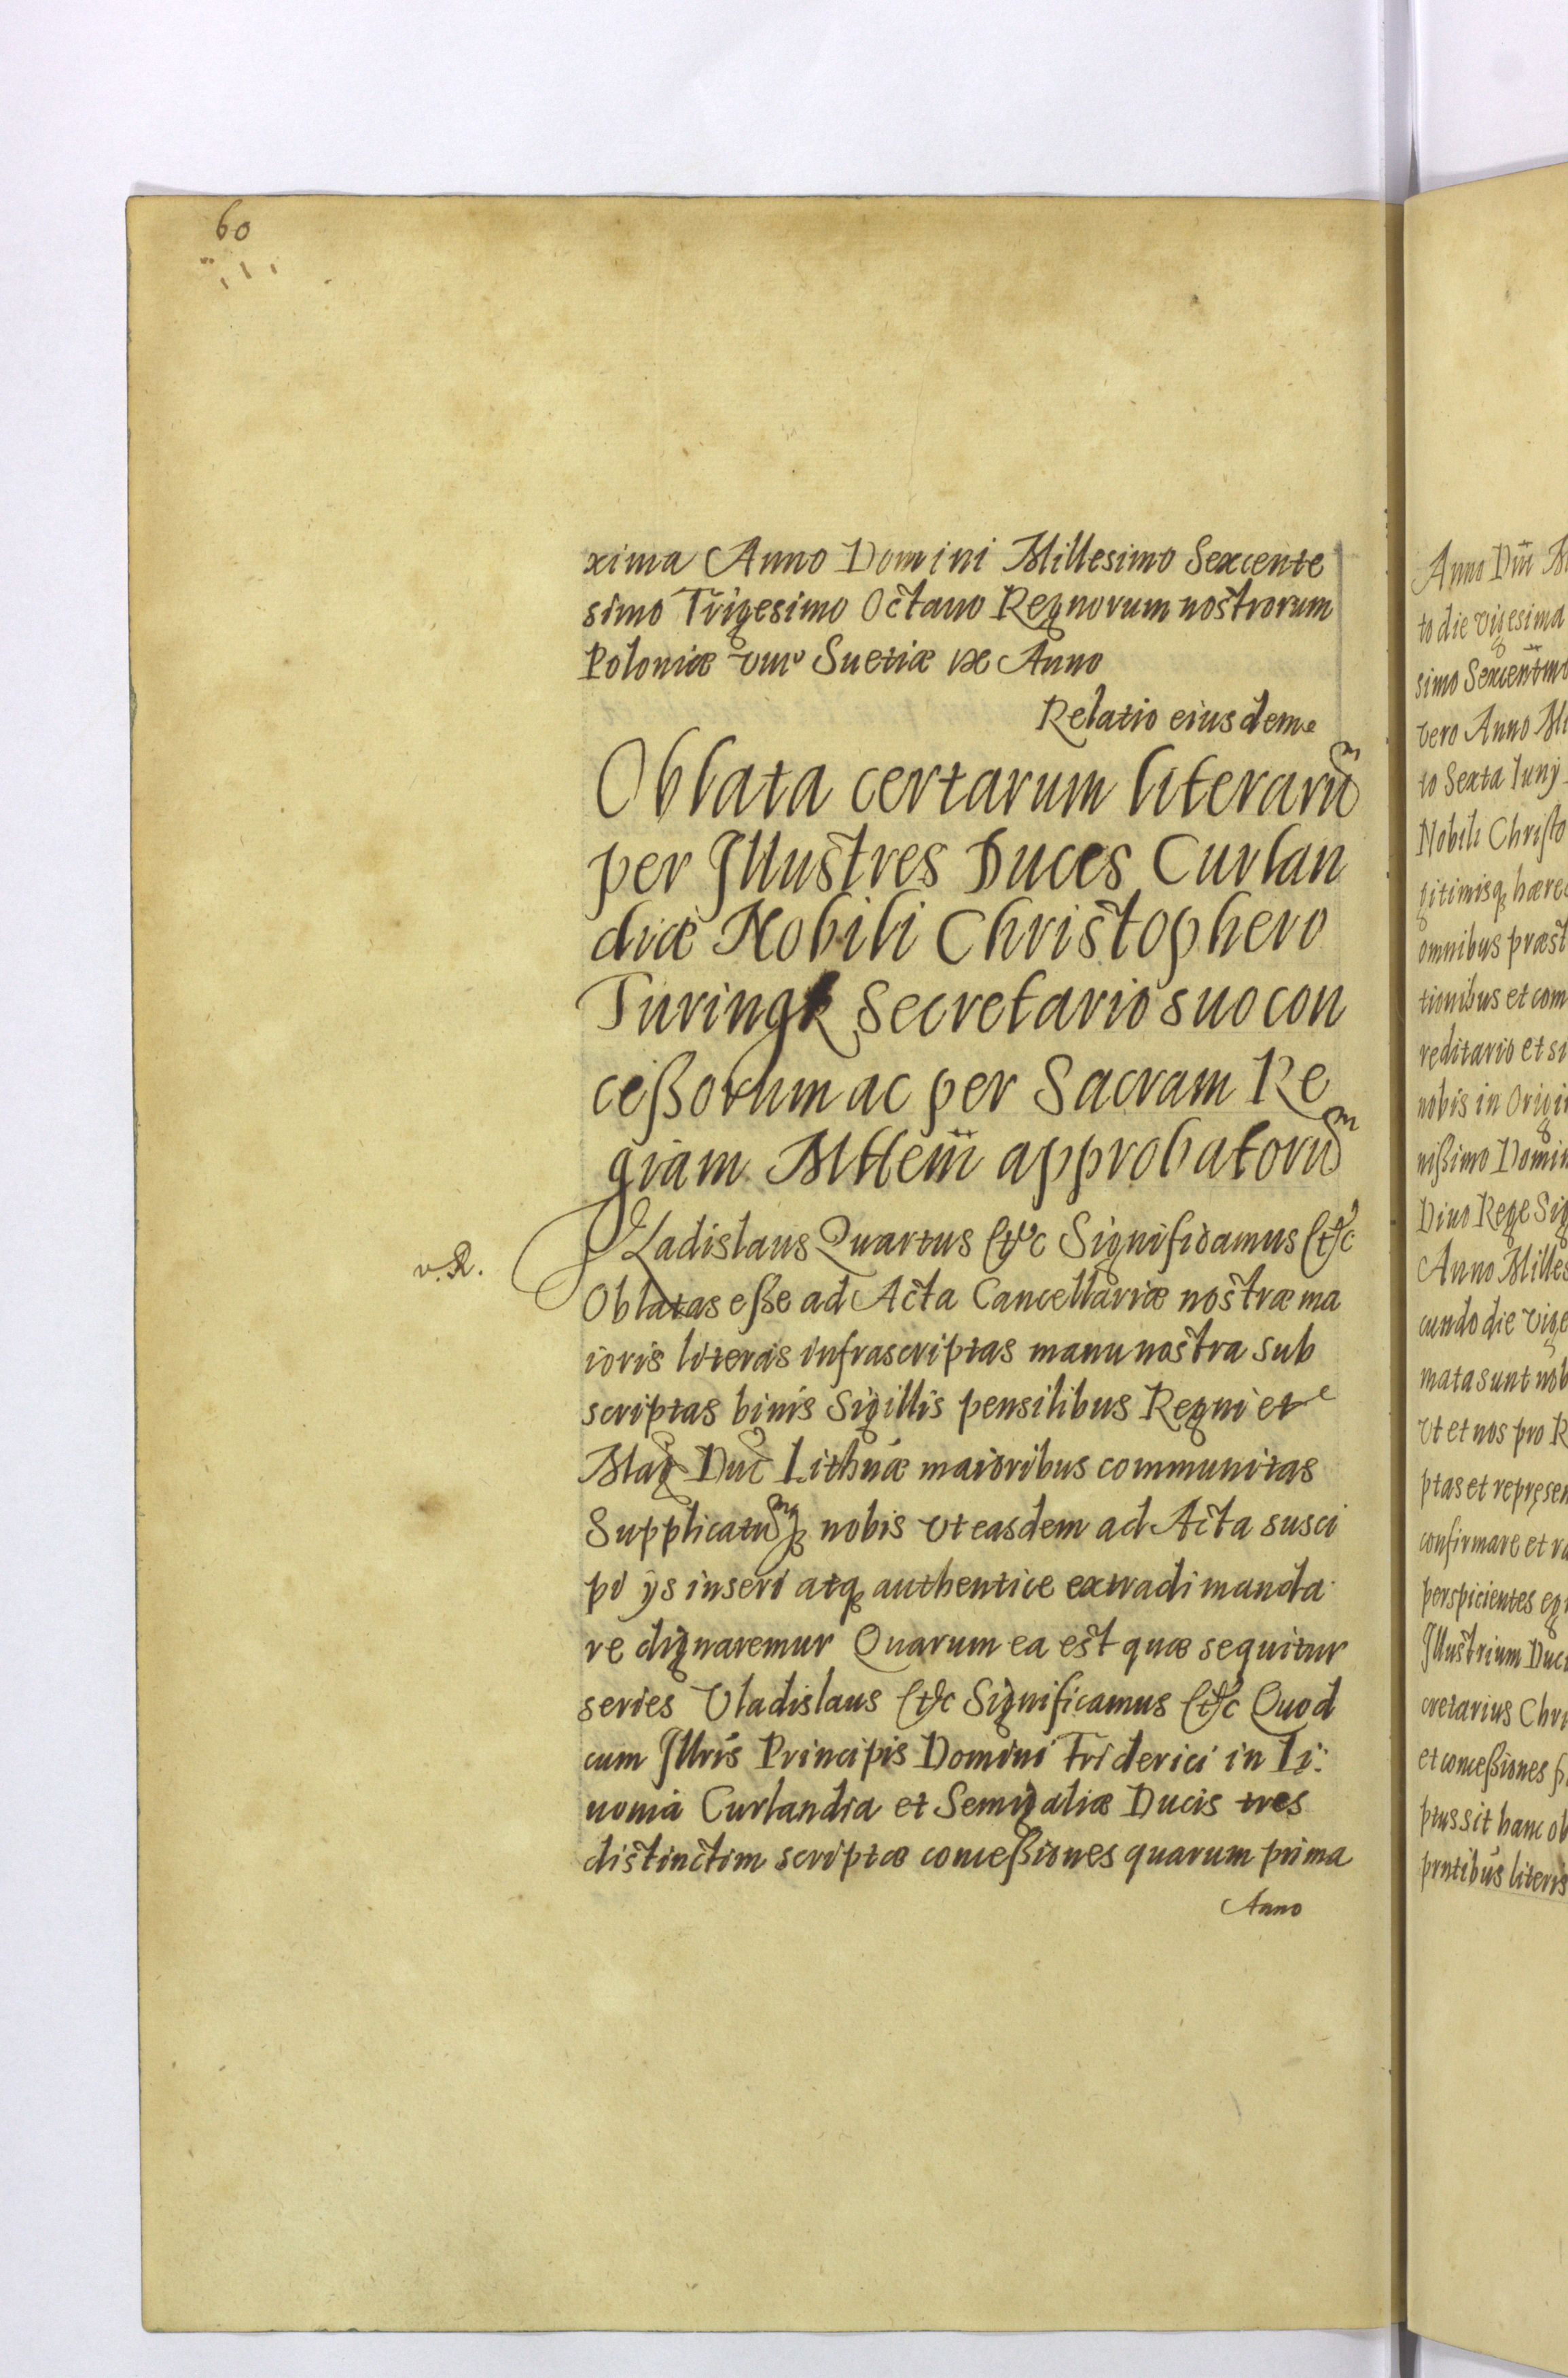 60
xima Anno Domini Millesimo Sexcente
simo Trigesimo Octauo Regnorum nostrorum
Poloniæ Suetiæ Anno
Relatio eiusdem
Oblata certarum literarũ
per Illustres Duces Curlan
diæ Nobili Christophero
Turingk Secretario suo con
ceßorum ac per Sacram Re
giam Mttem approbatorũ
v. R.
Vladislaus Quartus etc Significamus etc
Oblatas eße ad Acta Cancellariæ nostræ ma
ioris literas infrascriptas manu nostra sub
scriptas binis Sigillis pensilibus Regni et
Mag Duc Lithuæ maioribus communitas
Supplicatũq nobis vt easdem ad Acta susci
pi ijs inseri atq authentice extradi manda
re dignaremur Quarum ea est quæ sequitur
series Vladislaus etc Significamus etc Quod
cum Illris Principis Domini Friderici in Li:
uonia Curlandia et Semigaliæ Ducis tres
distinctim scriptæ conceßiones quarum prima
Anno
Anno Dni M
to die vigesima
simo Sexcentmo
vero Anno Mi
to Sexta Iunij
Nobili Christo
gitimisq hære
omnibus præst
tionibus et com
reditario et si
nobis in Origi
nißimo Domin
Diuo Rege Sig
Anno Milles
cundo die vige
mata sunt nob
vt et nos pro R
ptas et represen
confirmare et ra
perspicientes eg
Illustrium Duc
cretarius Chri
et conceßiones
ptus sit hanc ob
prntibus literis